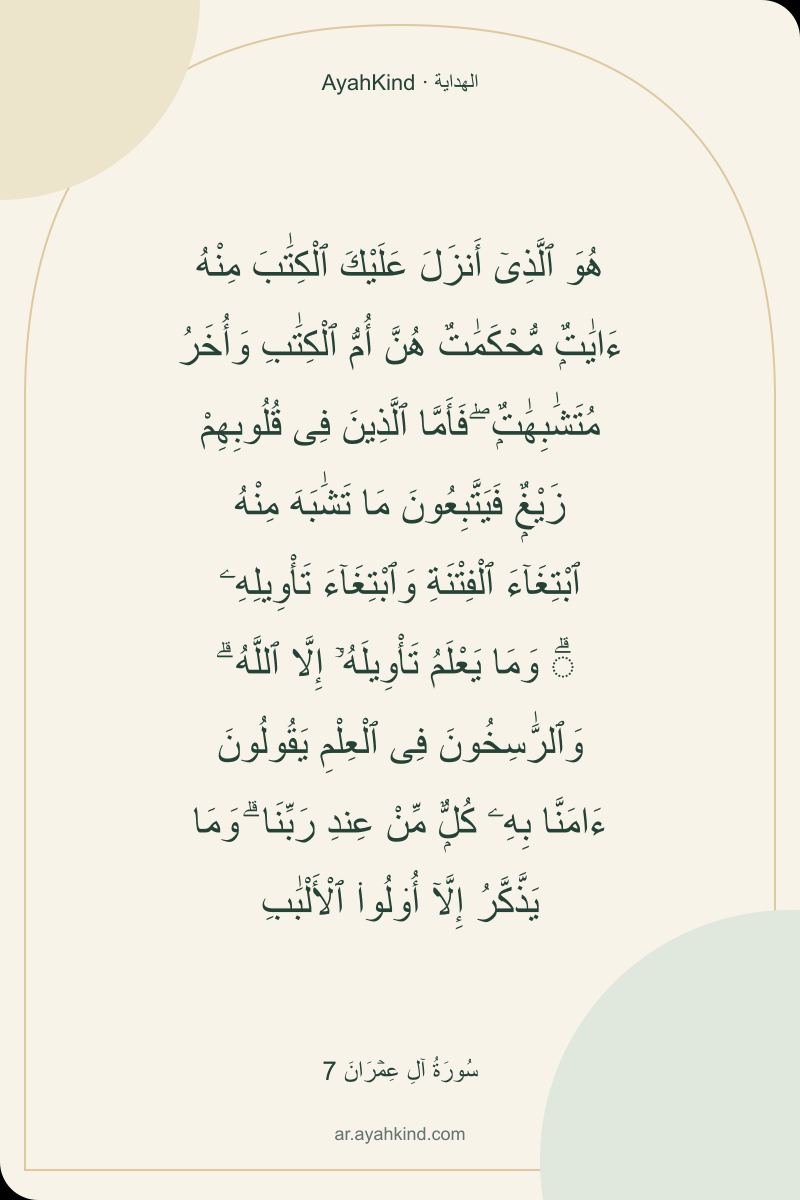 AyahKind · الهداية
هُوَ ٱلَّذِىٓ أَنزَلَ عَلَيْكَ ٱلْكِتَٰبَ مِنْهُ
ءَايَٰتٌۭ مُّحْكَمَٰتٌ هُنَّ أُمُّ ٱلْكِتَٰبِ وَأُخَرُ
مُتَشَٰبِهَٰتٌۭ ۖ فَأَمَّا ٱلَّذِينَ فِى قُلُوبِهِمْ
زَيْغٌۭ فَيَتَّبِعُونَ مَا تَشَٰبَهَ مِنْهُ
ٱبْتِغَآءَ ٱلْفِتْنَةِ وَٱبْتِغَآءَ تَأْوِيلِهِۦ
ۗ وَمَا يَعْلَمُ تَأْوِيلَهُۥٓ إِلَّا ٱللَّهُ ۗ
وَٱلرَّٰسِخُونَ فِى ٱلْعِلْمِ يَقُولُونَ
ءَامَنَّا بِهِۦ كُلٌّۭ مِّنْ عِندِ رَبِّنَا ۗ وَمَا
يَذَّكَّرُ إِلَّآ أُو۟لُوا۟ ٱلْأَلْبَٰبِ
سُورَةُ آلِ عِمۡرَانَ 7
ar.ayahkind.com